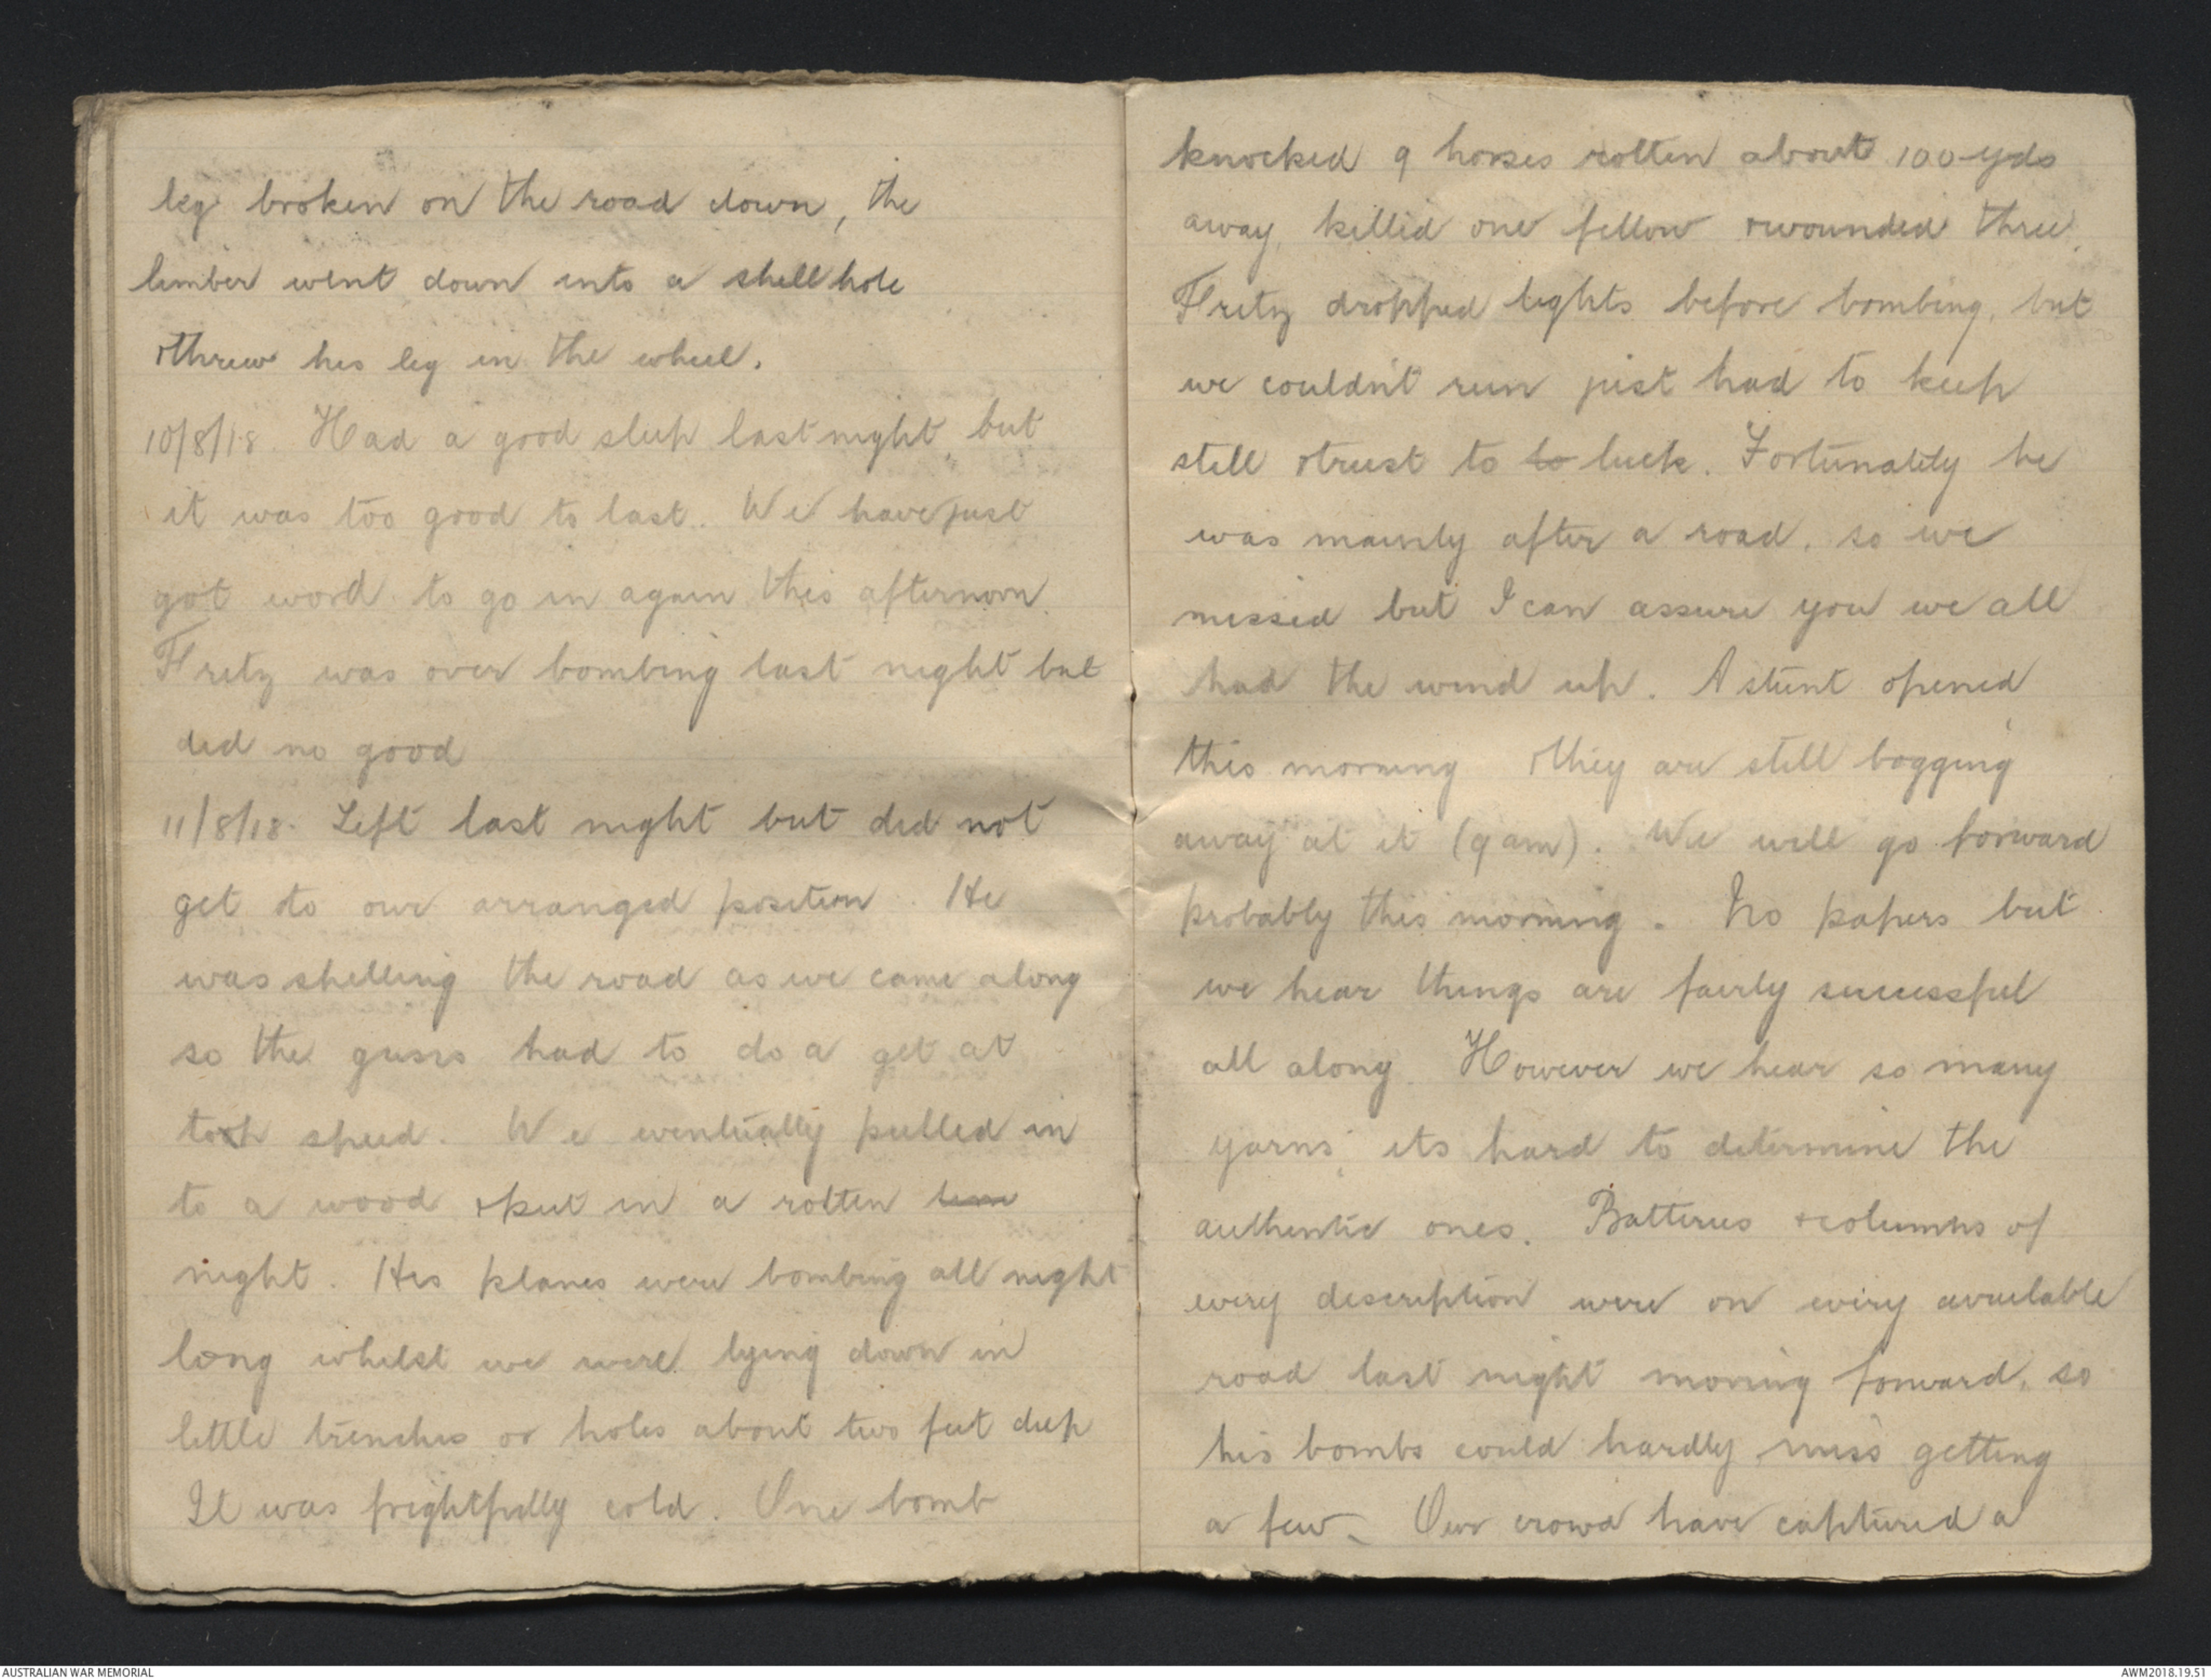 leg broken on the road down, the
limber went down into a shell hole
+ threw his leg in the wheel.
10/8/18. Had a good sleep last night, but
it was too good to last. We have just
got word to go in again this afternoon.
Fritz was over bombing last night but
did no good
11/8/18. Left last night but did not
get to our arranged position. He
was shelling the road as we came along
so the guns had to do a get at
top speed. We eventually pulled in
to a wood + put in a rotten time
night. His planes were bombing all night
long whilst we were lying down in
little trenches or holes about two feet deep
It was frightfully cold. One bomb
knocked 9 horses rotten about 100 yds
away, killed one fellow + wounded three.
Fritz dropped lights before bombing, but
we couldn't run just had to keep
still + trust to to luck. Fortunately he
was mainly after a road, so we
missed but I can assure you we all
had the wind up. A stunt opened
this morning + they are still bogging
away at it (9 am). We will go forward
probably this morning. No papers but
we hear things are fairly successful
all along. However we hear so many
yarns, its hard to determine the
authentic ones. Batteries + columns of
every description were on every available
road last night moving forward, so
his bombs could hardly miss getting
a few. Our crowd have captured a
AUSTRALIAN WAR MEMORIAL
AWM2018.19.51